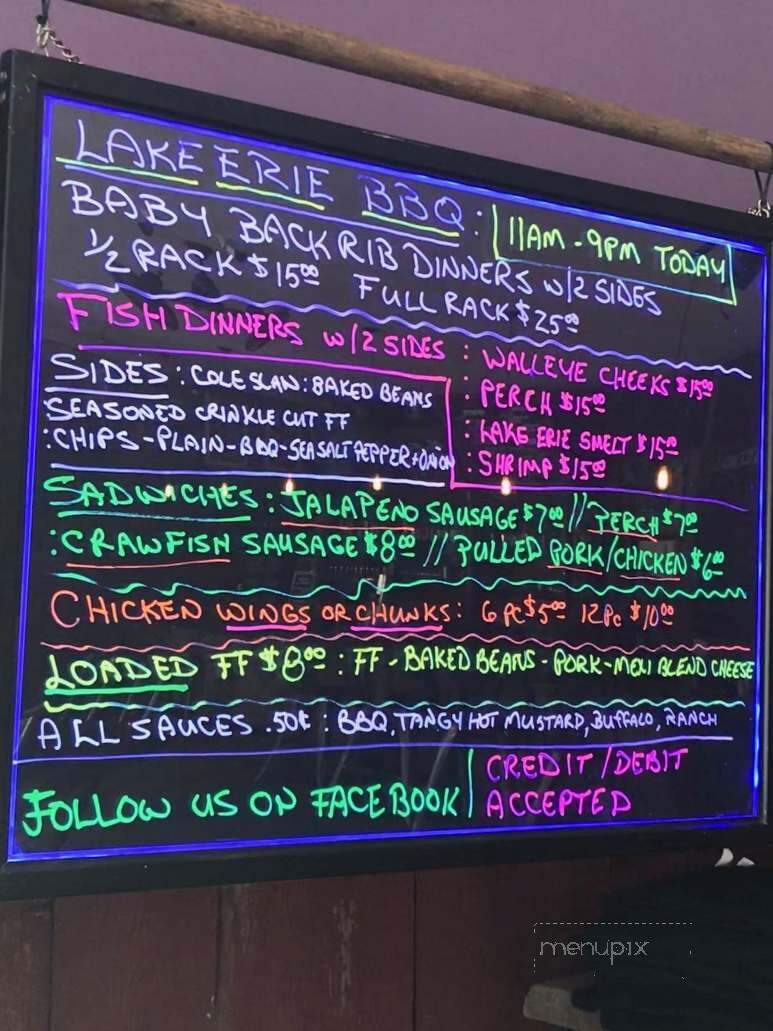 LAKE ERIE BBQ : 11AM - 9PM TODAY
BABY BACK RIB DINNERS W/2 SIDES
1/2 RACK $15.00 FULL RACK $25.00
FISH DINNERS W/2 SIDES : WALLEYE CHEEKS $15.00
: PERCH $15.00
: LAKE ERIE SMELT $15.00
: SHRIMP $15.00
SIDES : COLE SLAW : BAKED BEANS
SEASONED CRINKLE CUT FF
: CHIPS - PLAIN - BBQ - SEA SALT PEPPER + ONION
SADWICHES : JALAPENO SAUSAGE $7.00 // PERCH $7.00
: CRAWFISH SAUSAGE $8.00 // PULLED PORK/CHICKEN $6.00
CHICKEN WINGS OR CHUNKS : 6 PC $5.00 12 PC $10.00
LOADED FF $8.00 : FF - BAKED BEANS - PORK - MEXI BLEND CHEESE
ALL SAUCES .50¢ : BBQ, TANGY HOT MUSTARD, BUFFALO, RANCH
FOLLOW US ON FACEBOOK
CREDIT / DEBIT
ACCEPTED
menupix